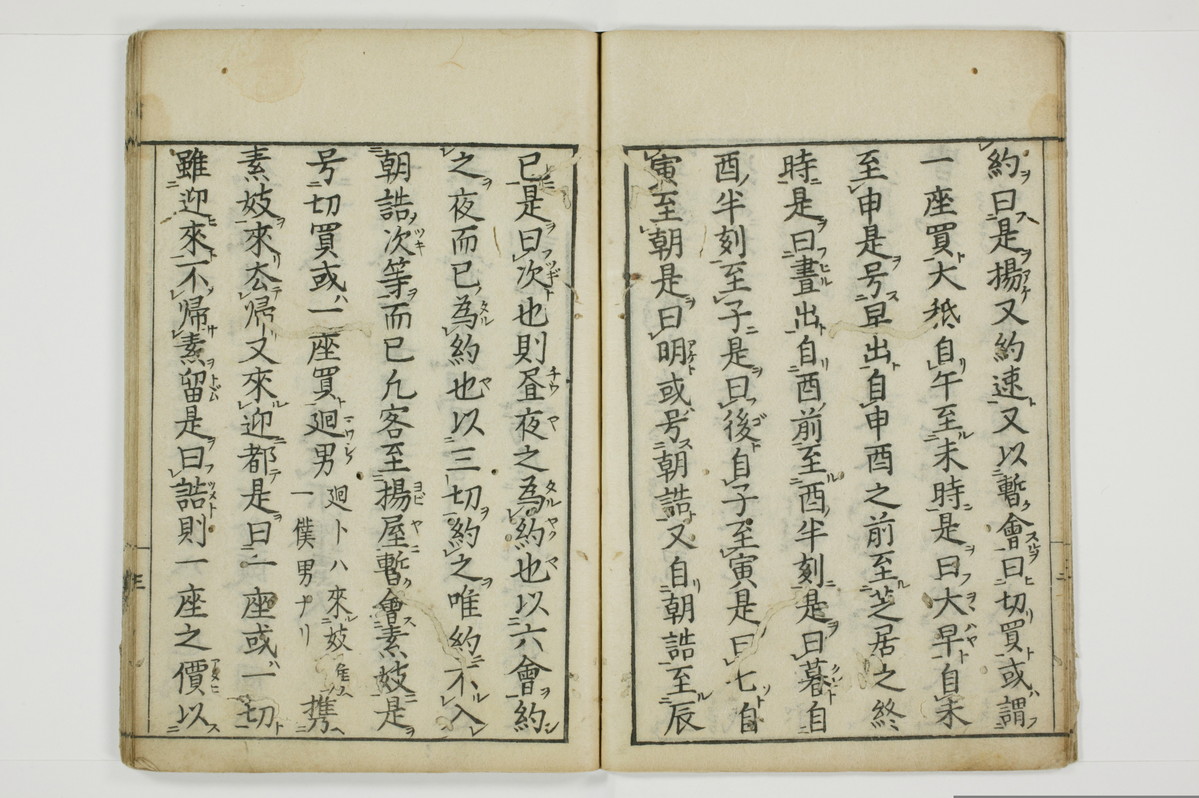 約曰是揚又約速又以暫會曰切買或謂
一座買大秡自午至未時是曰大早自未
至申是号早出自申酉之前至芝居之終
時是曰晝出自酉前至酉半刻是曰暮自
酉半刻至子是曰後自子至寅是曰七自
寅至朝是曰明或号朝誥又自朝誥至辰
巳是曰次也則昼夜之為約也以六會約
之夜而已為約也以三切約之唯約不入
朝誥次等而已凢客至揚屋暫會素妓是
号切買或一座買廻男廻トハ來妓一僕男ナリ携
素妓來厺帰又來迎都是曰一座或一切
雖迎來不帰素留是曰誥則一座之價以
三